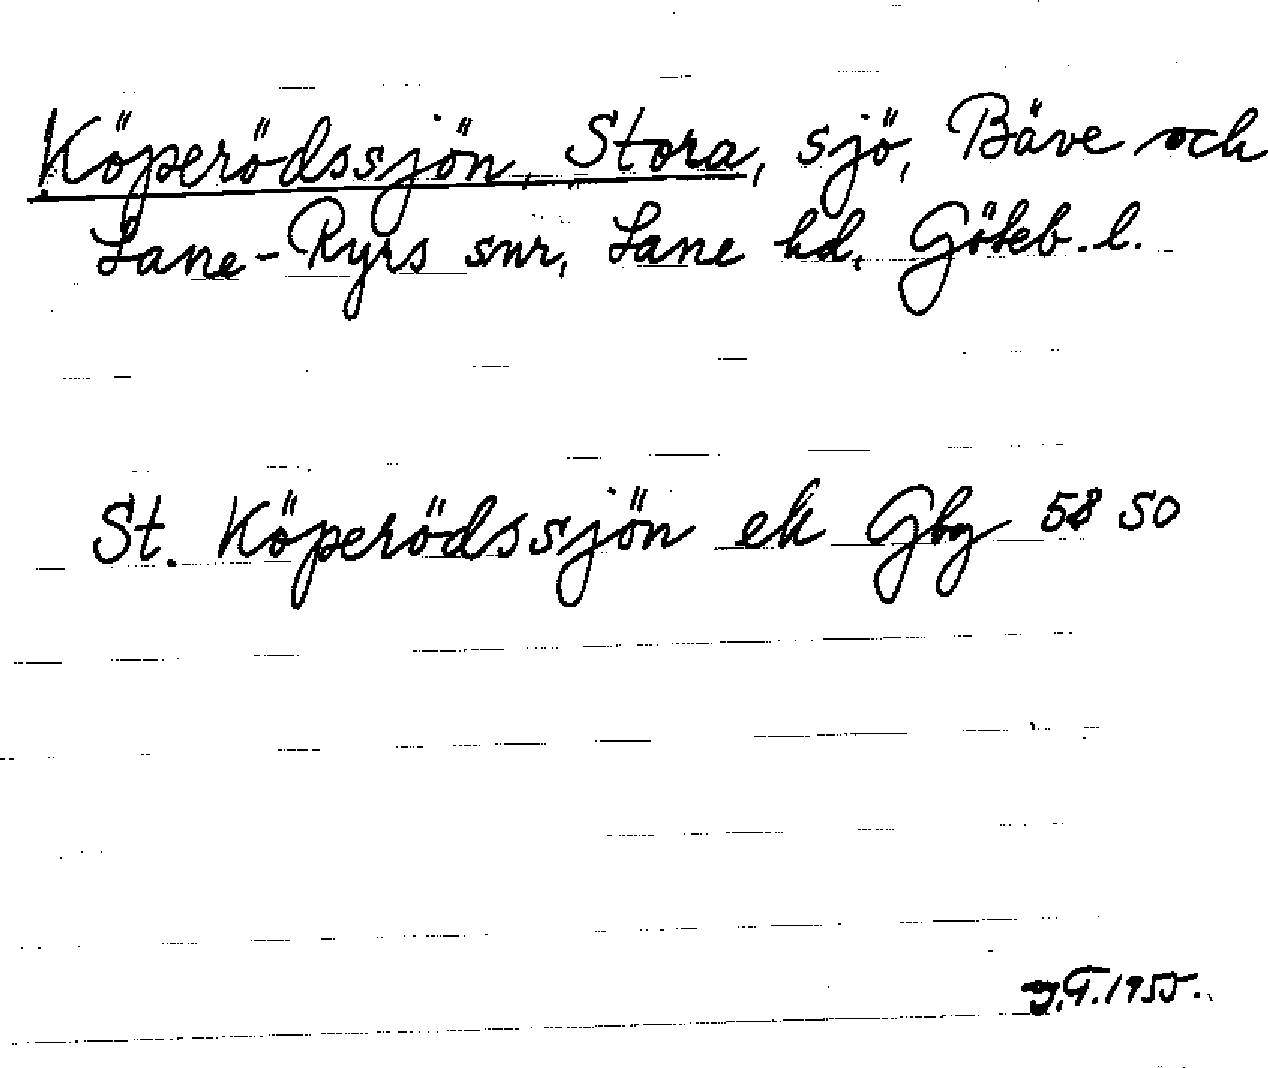 Köperödssjön, Stora, sjö, Bäve och
Lane-Ryrs snr, Lane hd, Göteb. l.
St. Köperödssjön ek Gbg 58 50
G.T. 1955.